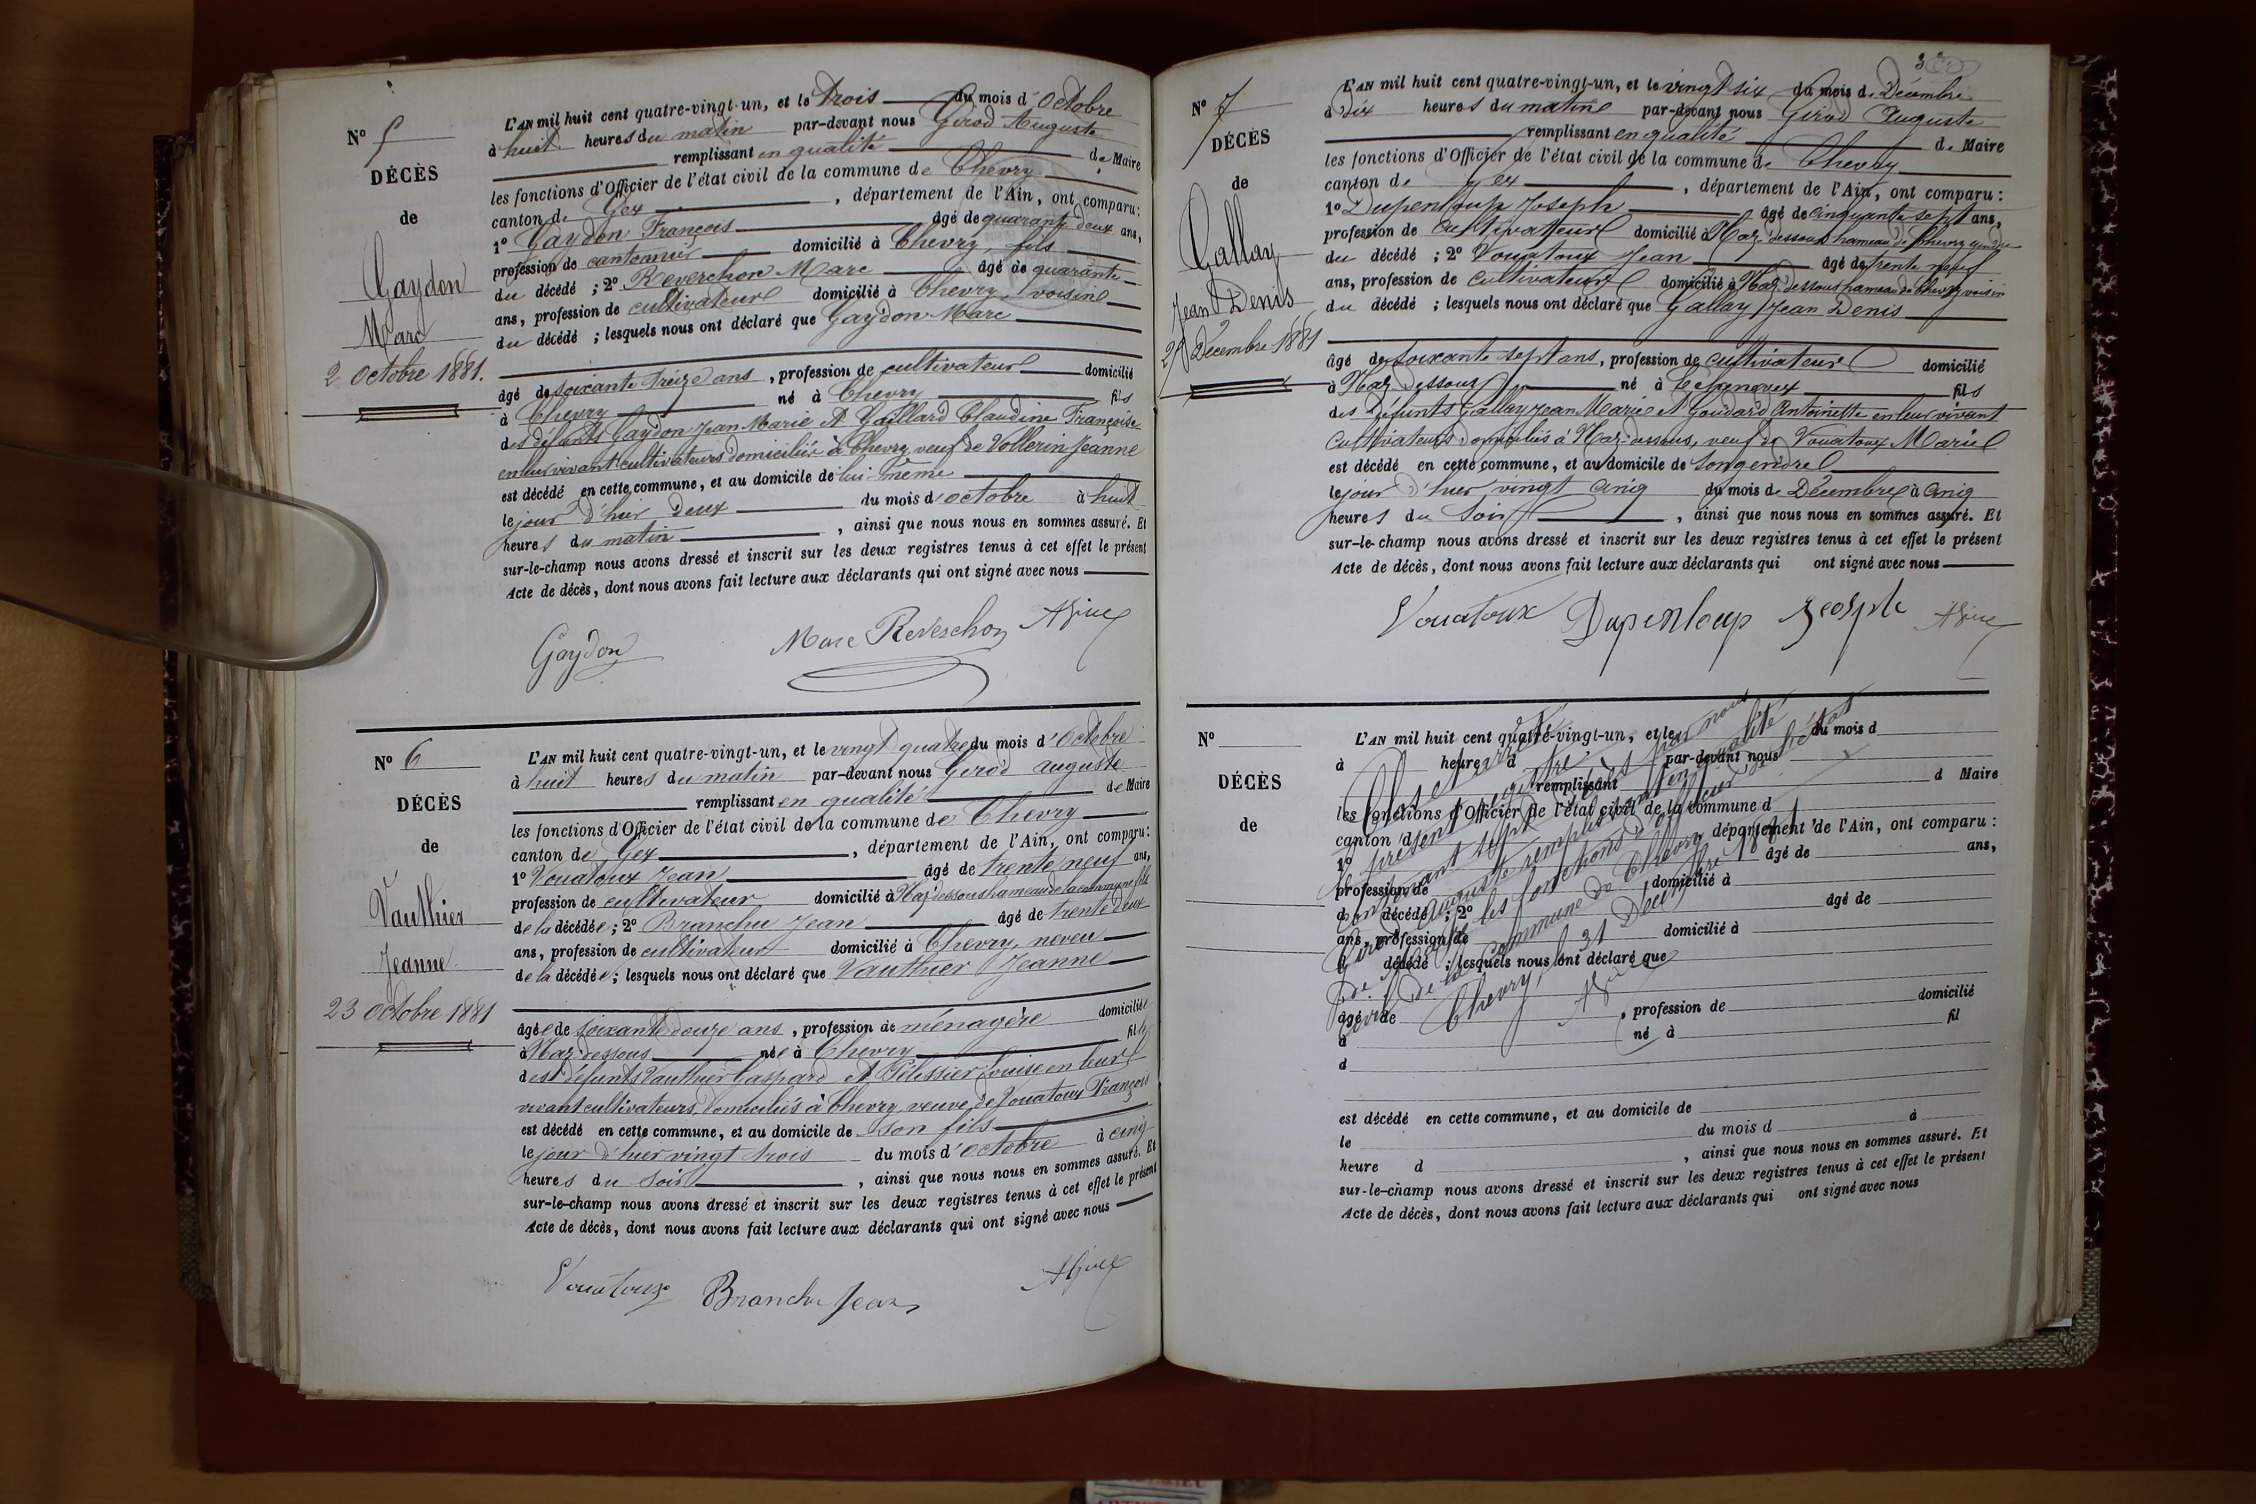 N° 5
DÉCÈS
de
Gaydon
Marc
2 Octobre 1881.
L'AN mil huit cent quatre-vingt-un, et le trois du mois d'Octobre
à huit heures du matin par-devant nous Girod Auguste
remplissant en qualité de Maire
les fonctions d'Officier de l'état civil de la commune de Chevry
canton de Gex, département de l'Ain, ont comparu :
1° Gaydon François âgé de quarante deux ans,
profession de cantonnier domicilié à Chevry, fils
du décédé ; 2° Reverchon Marc âgé de quarante
ans, profession de cultivateur domicilié à Chevry, voisin
du décédé ; lesquels nous ont déclaré que Gaydon Marc
âgé de soixante treize ans, profession de cultivateur domicilié
à Chevry né à Chevry fils
des défunts Gaydon Jean Marie et Gaillard Claudine Françoise
en leur vivant cultivateurs domiciliés à Chevry veuf de Vollerin Jeanne
est décédé en cette commune, et au domicile de lui-même
le jour d'hier deux du mois d'octobre à huit
heures du matin, ainsi que nous nous en sommes assuré. Et
sur-le-champ nous avons dressé et inscrit sur les deux registres tenus à cet effet le présent
Acte de décès, dont nous avons fait lecture aux déclarants qui ont signé avec nous
Gaydon Marc Reverchon
N° 6
DÉCÈS
de
Vauthier
Jeanne
23 Octobre 1881
L'AN mil huit cent quatre-vingt-un, et le vingt quatre du mois d'Octobre
à huit heures du matin par-devant nous Girod auguste
remplissant en qualité de Maire
les fonctions d'Officier de l'état civil de la commune de Chevry
canton de Gex, département de l'Ain, ont comparu :
1° Vouatoux Jean âgé de trente neuf ans,
profession de cultivateur domicilié à Naz dessous hameau de la commune fils
de la décédée ; 2° Branchu Jean âgé de trente deux
ans, profession de cultivateur domicilié à Chevry, neveu
de la décédée ; lesquels nous ont déclaré que Vauthier Jeanne
âgée de soixante douze ans, profession de ménagère domiciliée
à Naz-dessous née à Chevry fille
des défunts Vauthier Gaspard et Pélissier Louise en leur
vivant cultivateurs, domiciliés à Chevry, veuve de Vouatoux François
est décédé en cette commune, et au domicile de son fils
le jour d'hier vingt trois du mois d'octobre à cinq
heures du soir, ainsi que nous nous en sommes assuré. Et
sur-le-champ nous avons dressé et inscrit sur les deux registres tenus à cet effet le présent
Acte de décès, dont nous avons fait lecture aux déclarants qui ont signé avec nous
Vouatoux Branchu Jean
N° 7
DÉCÈS
de
Gallay
Jean Denis
25 Décembre 1881
L'AN mil huit cent quatre-vingt-un, et le vingt six du mois de Décembre
à dix heures du matin par-devant nous Girod Auguste
remplissant en qualité de Maire
les fonctions d'Officier de l'état civil de la commune de Chevry
canton de Gex, département de l'Ain, ont comparu :
1° Dupenloup Joseph âgé de cinquante sept ans,
profession de cultivateur domicilié à Naz dessous hameau de Chevry gendre
du décédé ; 2° Vouatoux Jean âgé de trente neuf
ans, profession de cultivateur domicilié à Naz dessous hameau de Chevry voisin
du décédé ; lesquels nous ont déclaré que Gallay Jean Denis
âgé de soixante sept ans, profession de cultivateur domicilié
à Naz Dessous né à fils
des défunts Gallay Jean Marie et Goudard Antoinette en leur vivant
Cultivateurs domiciliés à Naz-dessous, veuf de Vouatoux Marie
est décédé en cette commune, et au domicile de son gendre
le jour d'hier vingt cinq du mois de Décembre à cinq
heures du Soir, ainsi que nous nous en sommes assuré. Et
sur-le-champ nous avons dressé et inscrit sur les deux registres tenus à cet effet le présent
Acte de décès, dont nous avons fait lecture aux déclarants qui ont signé avec nous
Vouatoux Dupenloup Joseph
N°
DÉCÈS
de
L'AN mil huit cent quatre-vingt-un, et le du mois d
à heure d par-devant nous
remplissant d Maire
les fonctions d'Officier de l'état civil de la commune d
canton d département de l'Ain, ont comparu :
1° âgé de ans,
profession de domicilié à
d décédé ; 2° âgé de
ans, profession de domicilié à
d décédé ; lesquels nous ont déclaré que
âgé de, profession de domicilié
à né à fil
d
est décédé en cette commune, et au domicile de
le du mois d à
heure d, ainsi que nous nous en sommes assuré. Et
sur-le-champ nous avons dressé et inscrit sur les deux registres tenus à cet effet le présent
Acte de décès, dont nous avons fait lecture aux déclarants qui ont signé avec nous
Clos et arrêté le
présent registre
contenant sept par nous
Girod Auguste remplissant en qualité
de les fonctions d'officier de l'état
civil de la commune de Chevry
Chevry, le 31 Décembre 1881